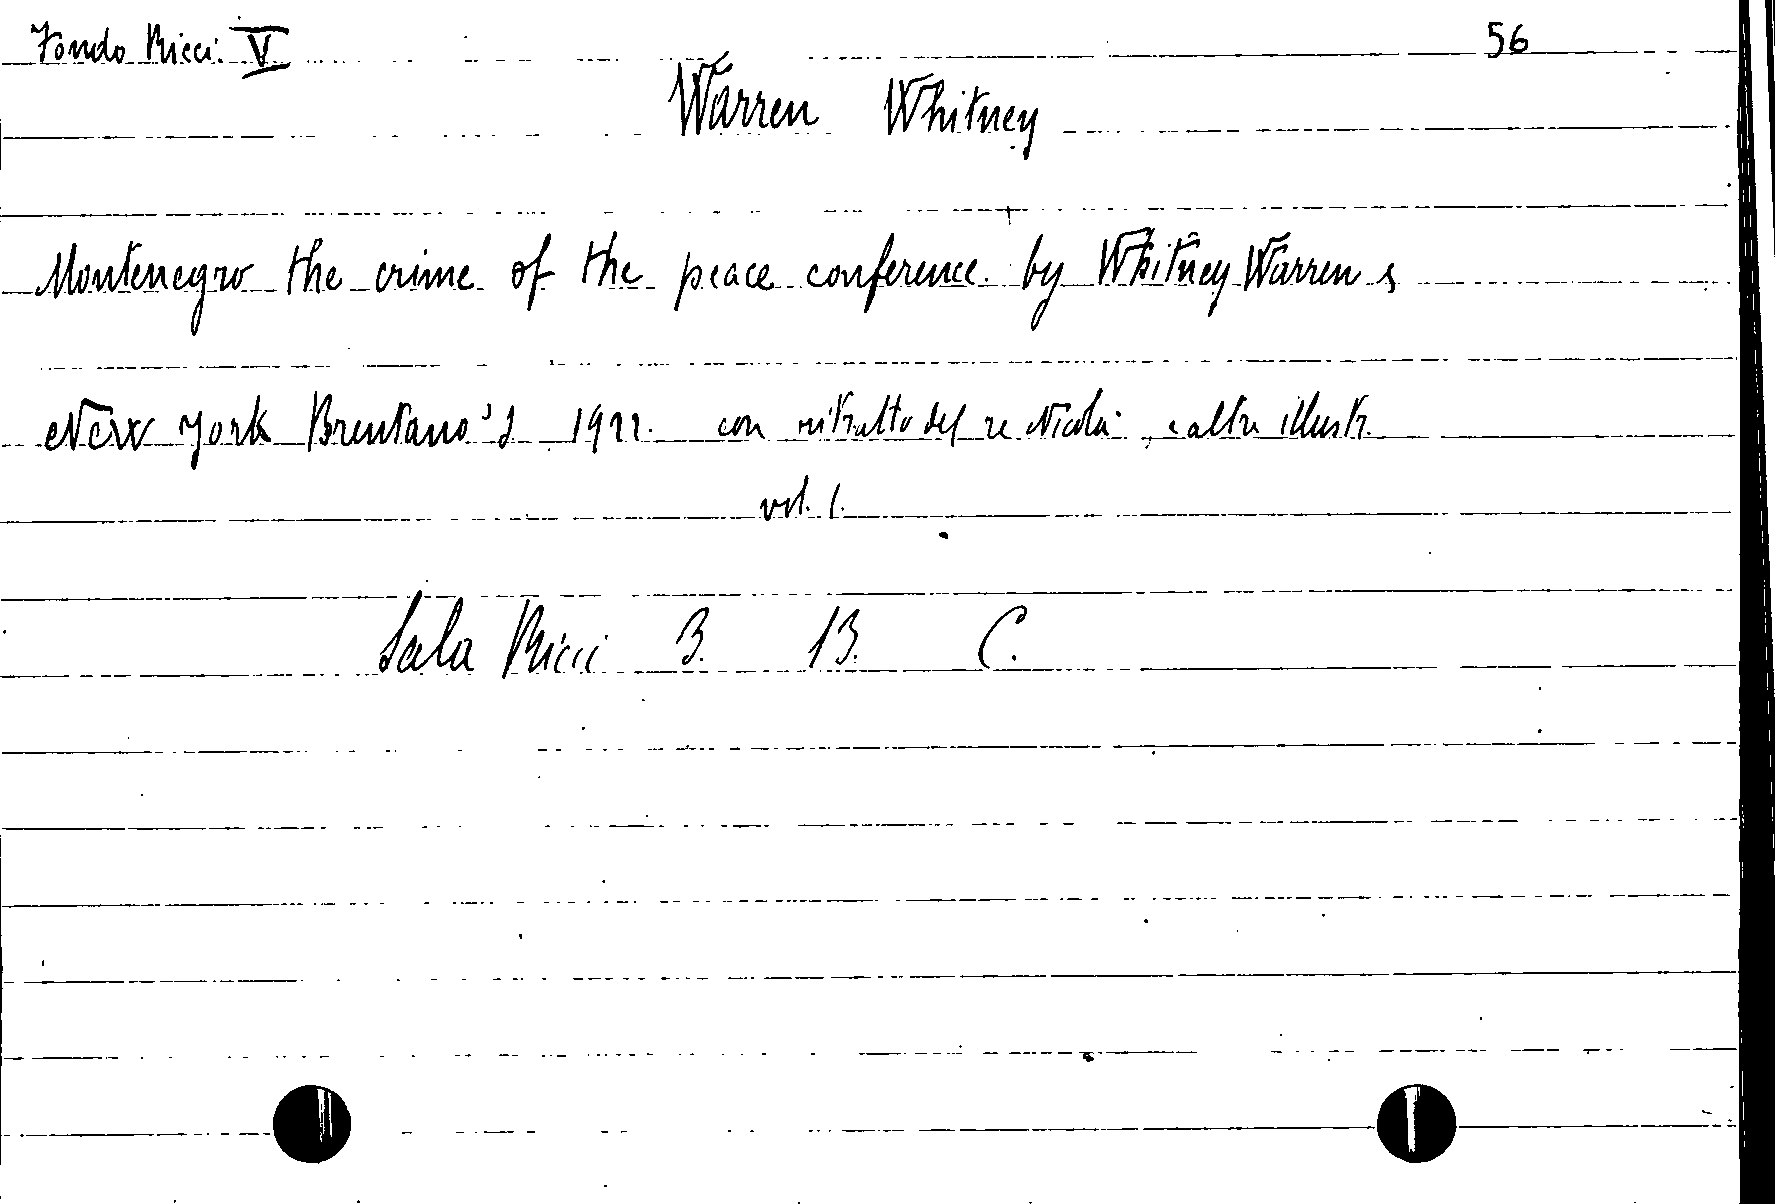 Fondo Ricci. V 56
Warren Whitney
Montenegro the crime of the peace conference. by Whitney Warren s
New York Brentano's 1922. con ritratto del re Nicola, e altre illustr.
vol. 1.
Sala Ricci 3. 13. C.